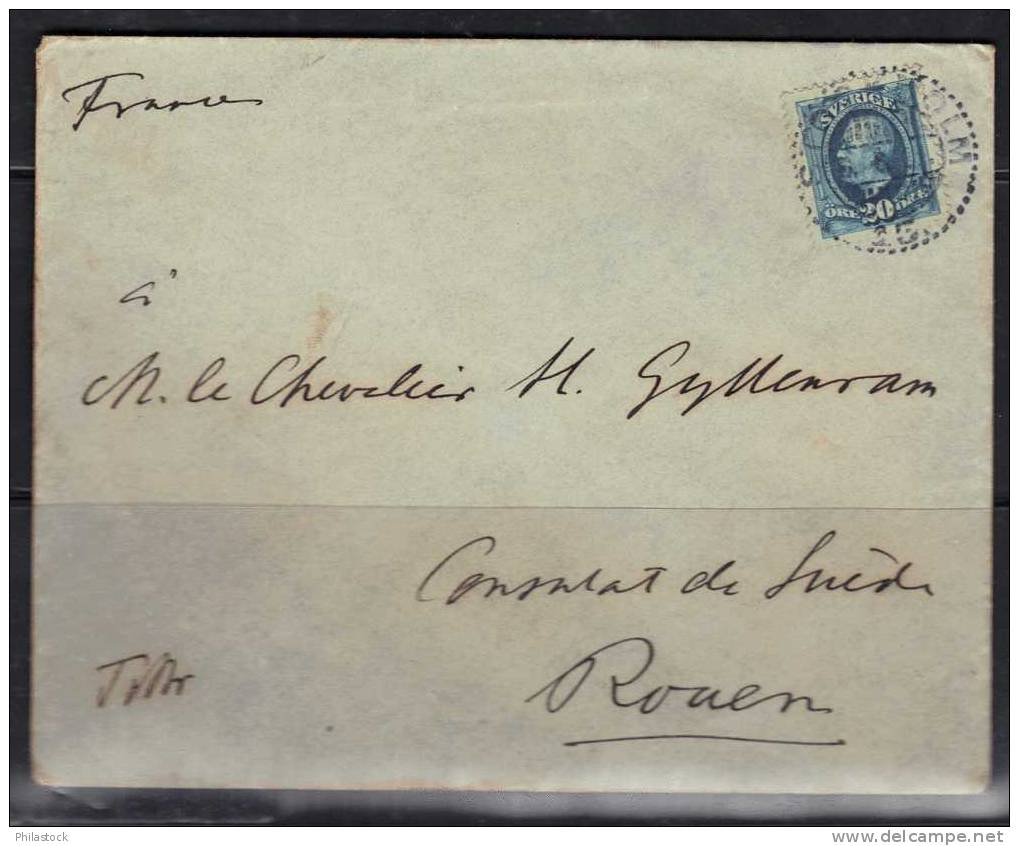 France
SVERIGE
OLM
ÖRE 20 ÖRE
à
M. le Chevalier H. Gyllenram
Consulat de Suède
Rouen
Philastock
www.delcampe.net